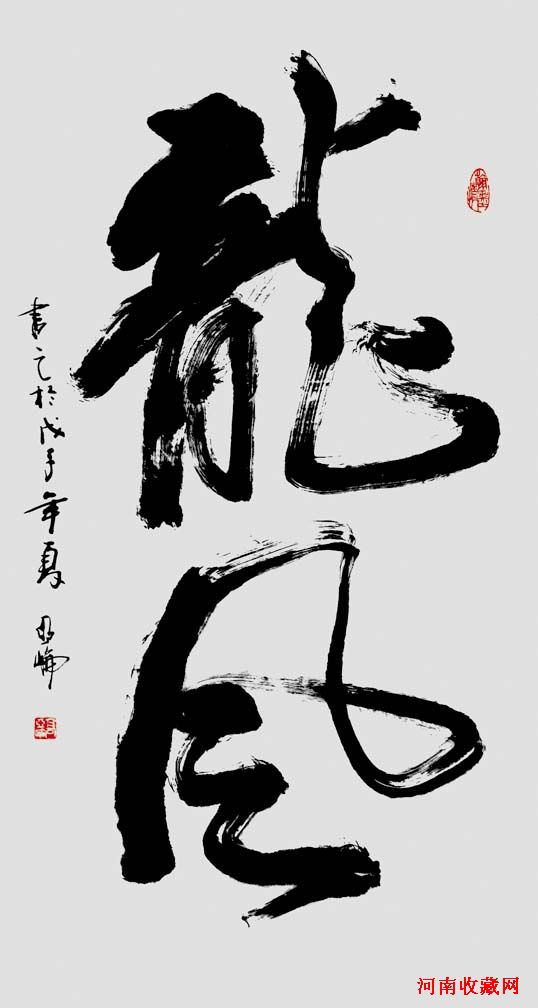 龍風
書之於戊子年夏
河南收藏网